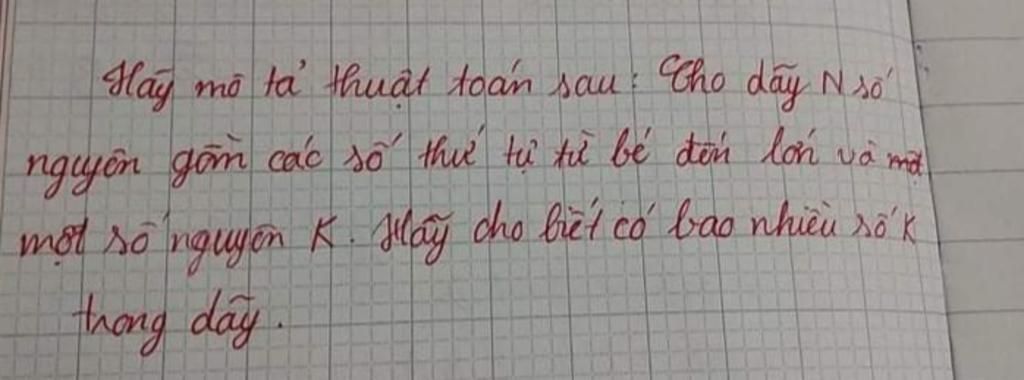 Hãy mô tả thuật toán sau: Cho dãy N số
nguyên gồm các số thứ tự từ bé đến lớn và một
một số nguyên K. Hãy cho biết có bao nhiêu số K
trong dãy.